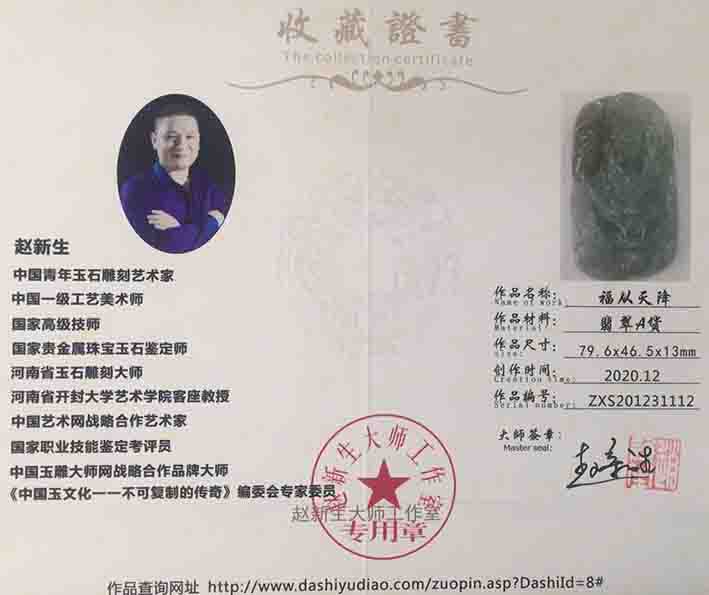 收藏證書
The collection certificate
赵新生
中国青年玉石雕刻艺术家
中国一级工艺美术师
国家高级技师
国家贵金属珠宝玉石鉴定师
河南省玉石雕刻大师
河南省开封大学艺术学院客座教授
中国艺术网战略合作艺术家
国家职业技能鉴定考评员
中国玉雕大师网战略合作品牌大师
《中国玉文化一一不可复制的传奇》编委会专家委员
作品名称： 福从天降
Name of work:
作品材料： 翡翠A货
Material:
作品尺寸： 79.6x46.5x13mm
size:
创作时间： 2020.12
Creation time:
作品编号： ZXS201231112
Serial number:
大師签章：
Master seal:
赵新生
赵新生大师工作室
专用章
赵新生大师工作室
作品查询网址 http://www.dashiyudiao.com/zuopin.asp?DashiId=8#